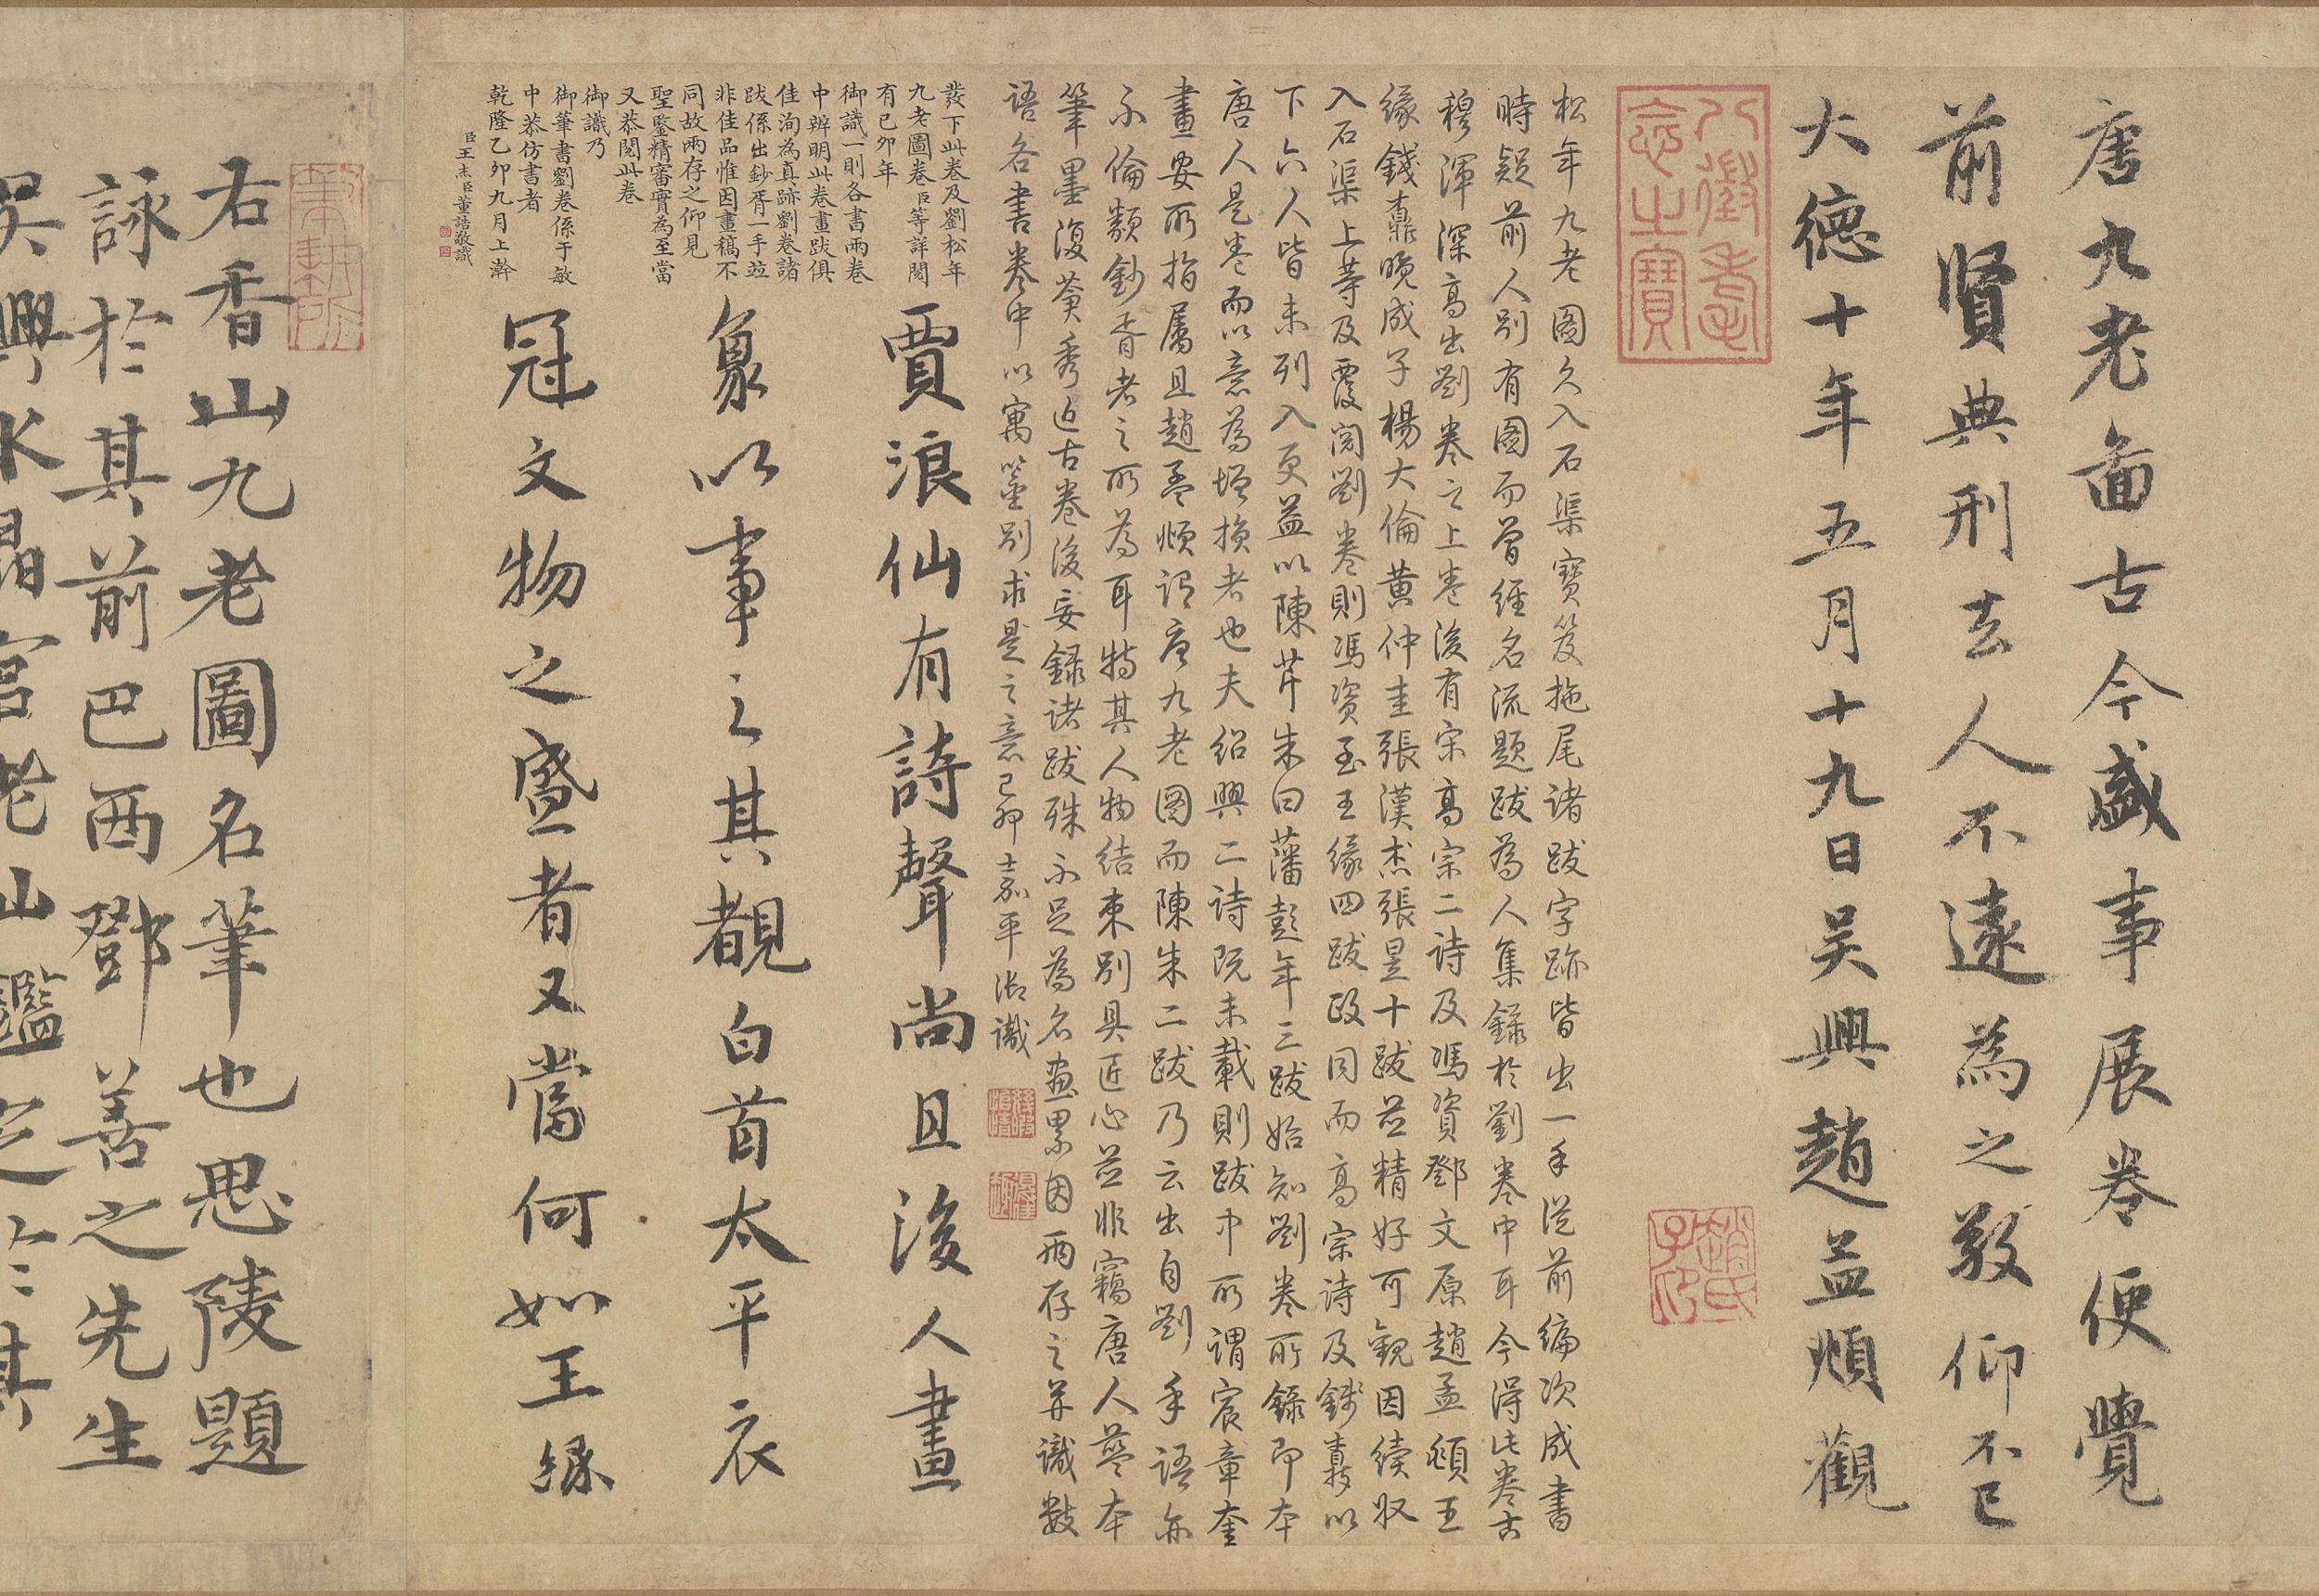 唐九老啚古今盛事展卷便覺
前賢典刑去人不遠為之敬仰不已
大德十年五月十九日吴興趙孟頫觀
八徵耄念之寶
趙氏子昂
松年九老圖久入石渠寶笈拖尾諸跋字跡皆出一手從前編次成書
時疑前人別有圖而曾經名流題跋為人集錄於劉卷中耳今得此卷古
穆渾深高出劉卷之上卷後有宋高宗二詩及馮資鄧文原趙孟頫王
緣錢鼒晚成子楊大倫黃仲圭張漢杰張昱十跋並精好可觀因續收
入石渠上等及覆閱劉卷則馮資至王緣四跋既同而高宗詩及錢鼒以
下六人皆未列入更益以陳芹朱曰藩彭年三跋始知劉卷所錄即本
唐人是卷而以意為增損者也夫紹興二詩既未載則跋中所謂宸章奎
畫安所指屬且趙孟頫謂唐九老圖而陳朱二跋乃云出自劉手語亦
不倫類鈔胥者之所為耳特其人物結束別具匠心並非竊唐人藍本
筆墨復黃秀近古卷後妄錄諸跋殊不足為名畫累因兩存之并識數
語各書卷中以寓鑒別求是之意己卯嘉平御識
發下此卷及劉松年
九老圖卷臣等詳閱
有己卯年
御識一則各書兩卷
中辨明此卷畫跋俱
佳洵為真跡劉卷諸
跋係出鈔胥一手並
非佳品惟因畫稿不
同故兩存之仰見
聖鑒精審實為至當
又恭閱此卷
御識乃
御筆書劉卷係于敏
中恭仿書者
乾隆乙卯九月上澣
臣王杰臣董誥敬識
賈浪仙有詩聲尚且後人畫
象以事之其覩白首太平衣
冠文物之盛者又當何如王緣
右香山九老圖名筆也思陵題
詠於其前巴西鄧善之先生
吳興水晶宮老山鑑定於其